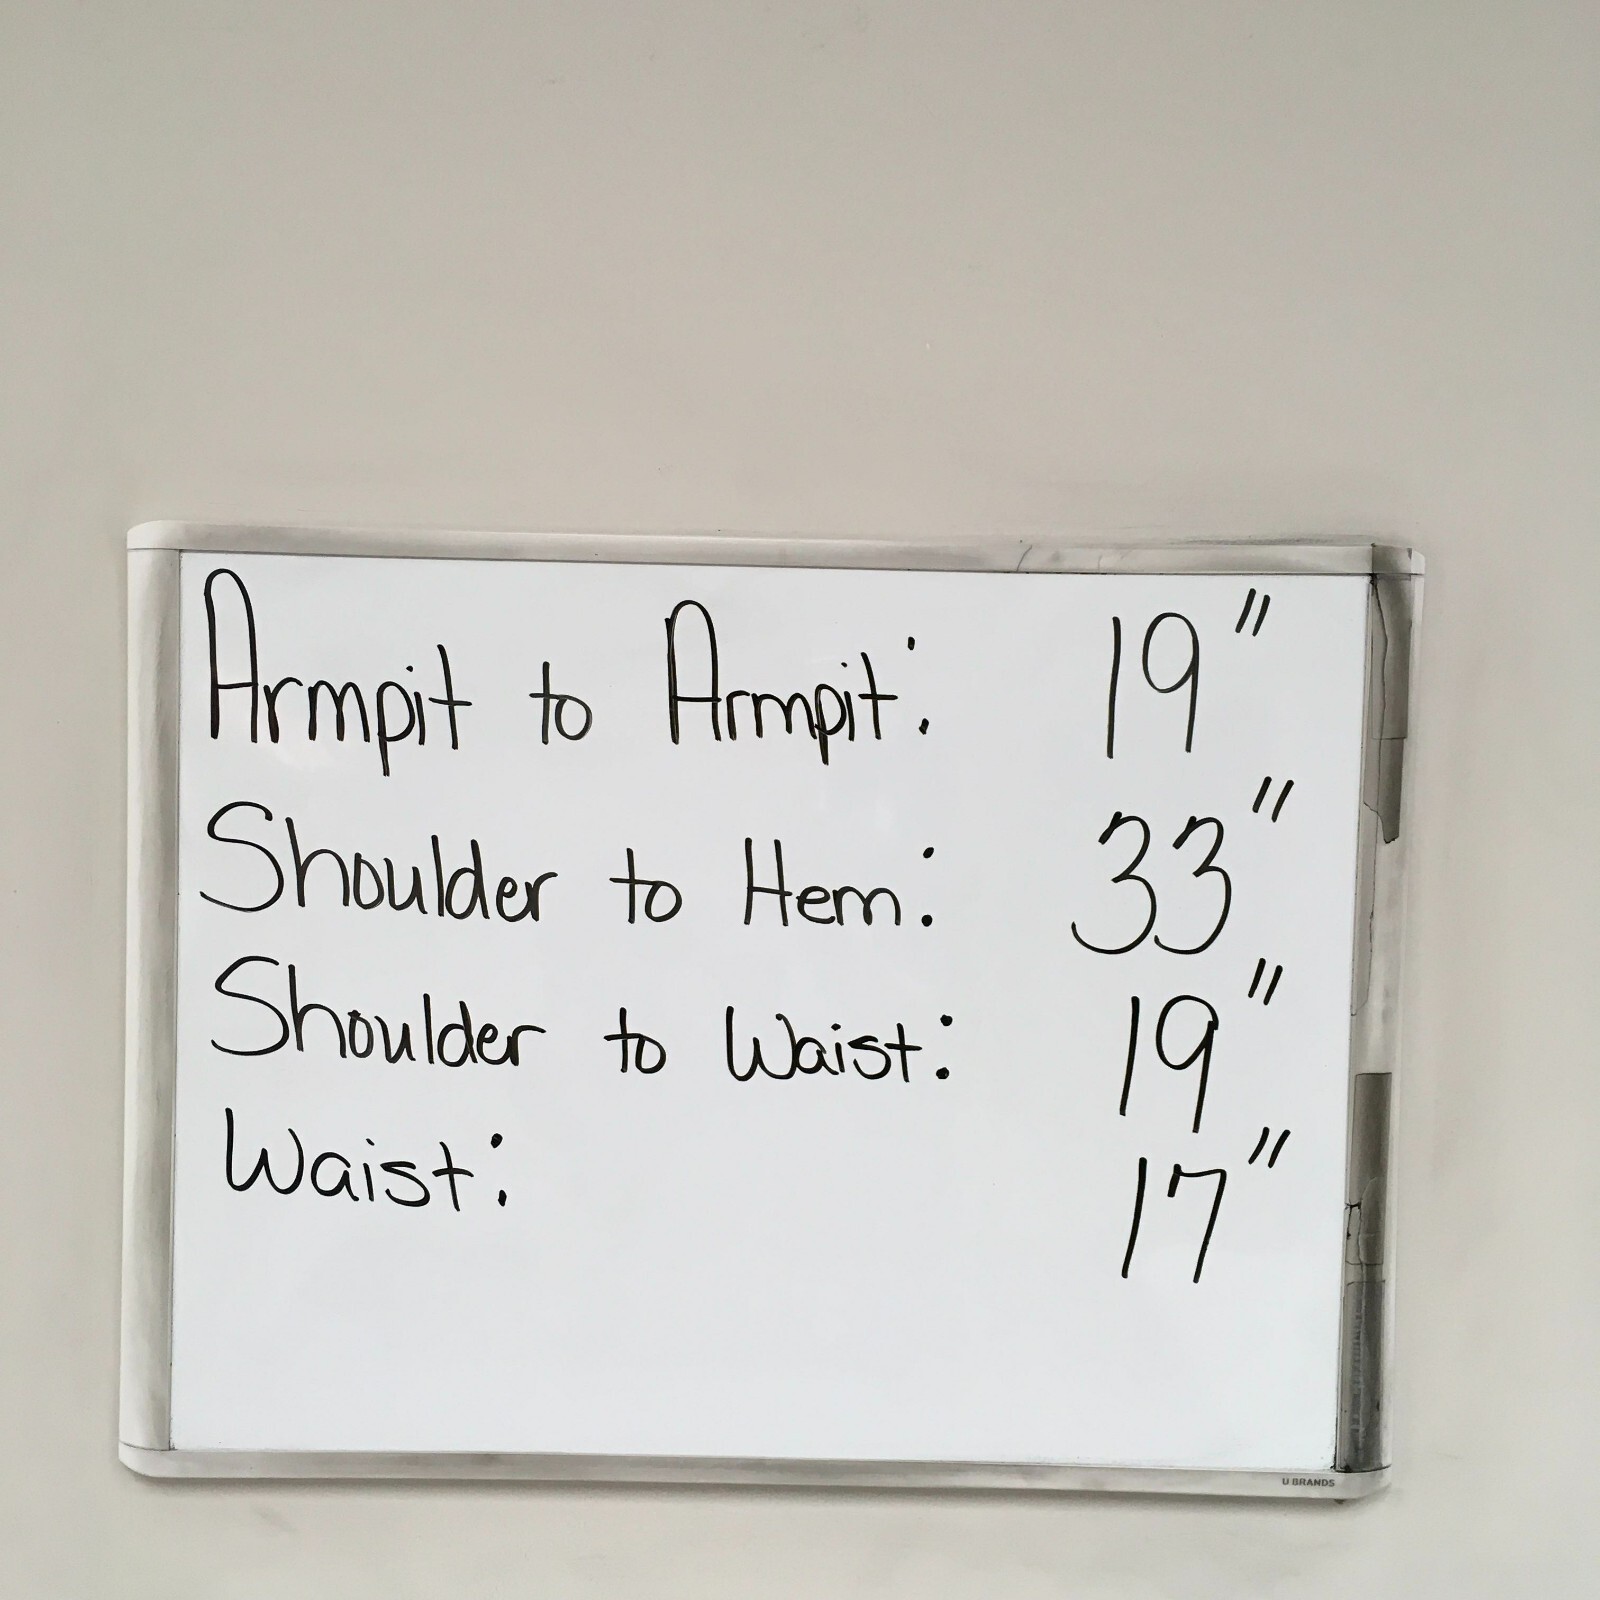 Armpit to Armpit: 19"
Shoulder to Hem: 33"
Shoulder to Waist: 19"
Waist: 17"
U BRANDS